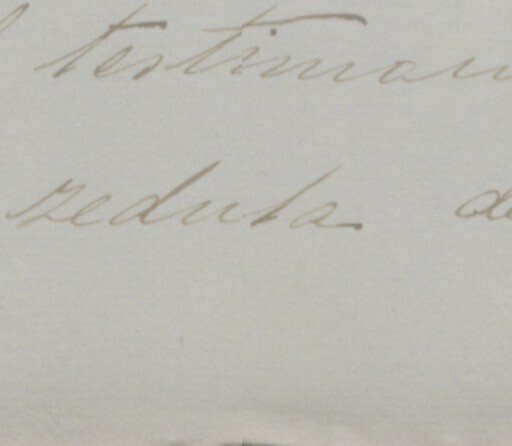 testimon
seduta